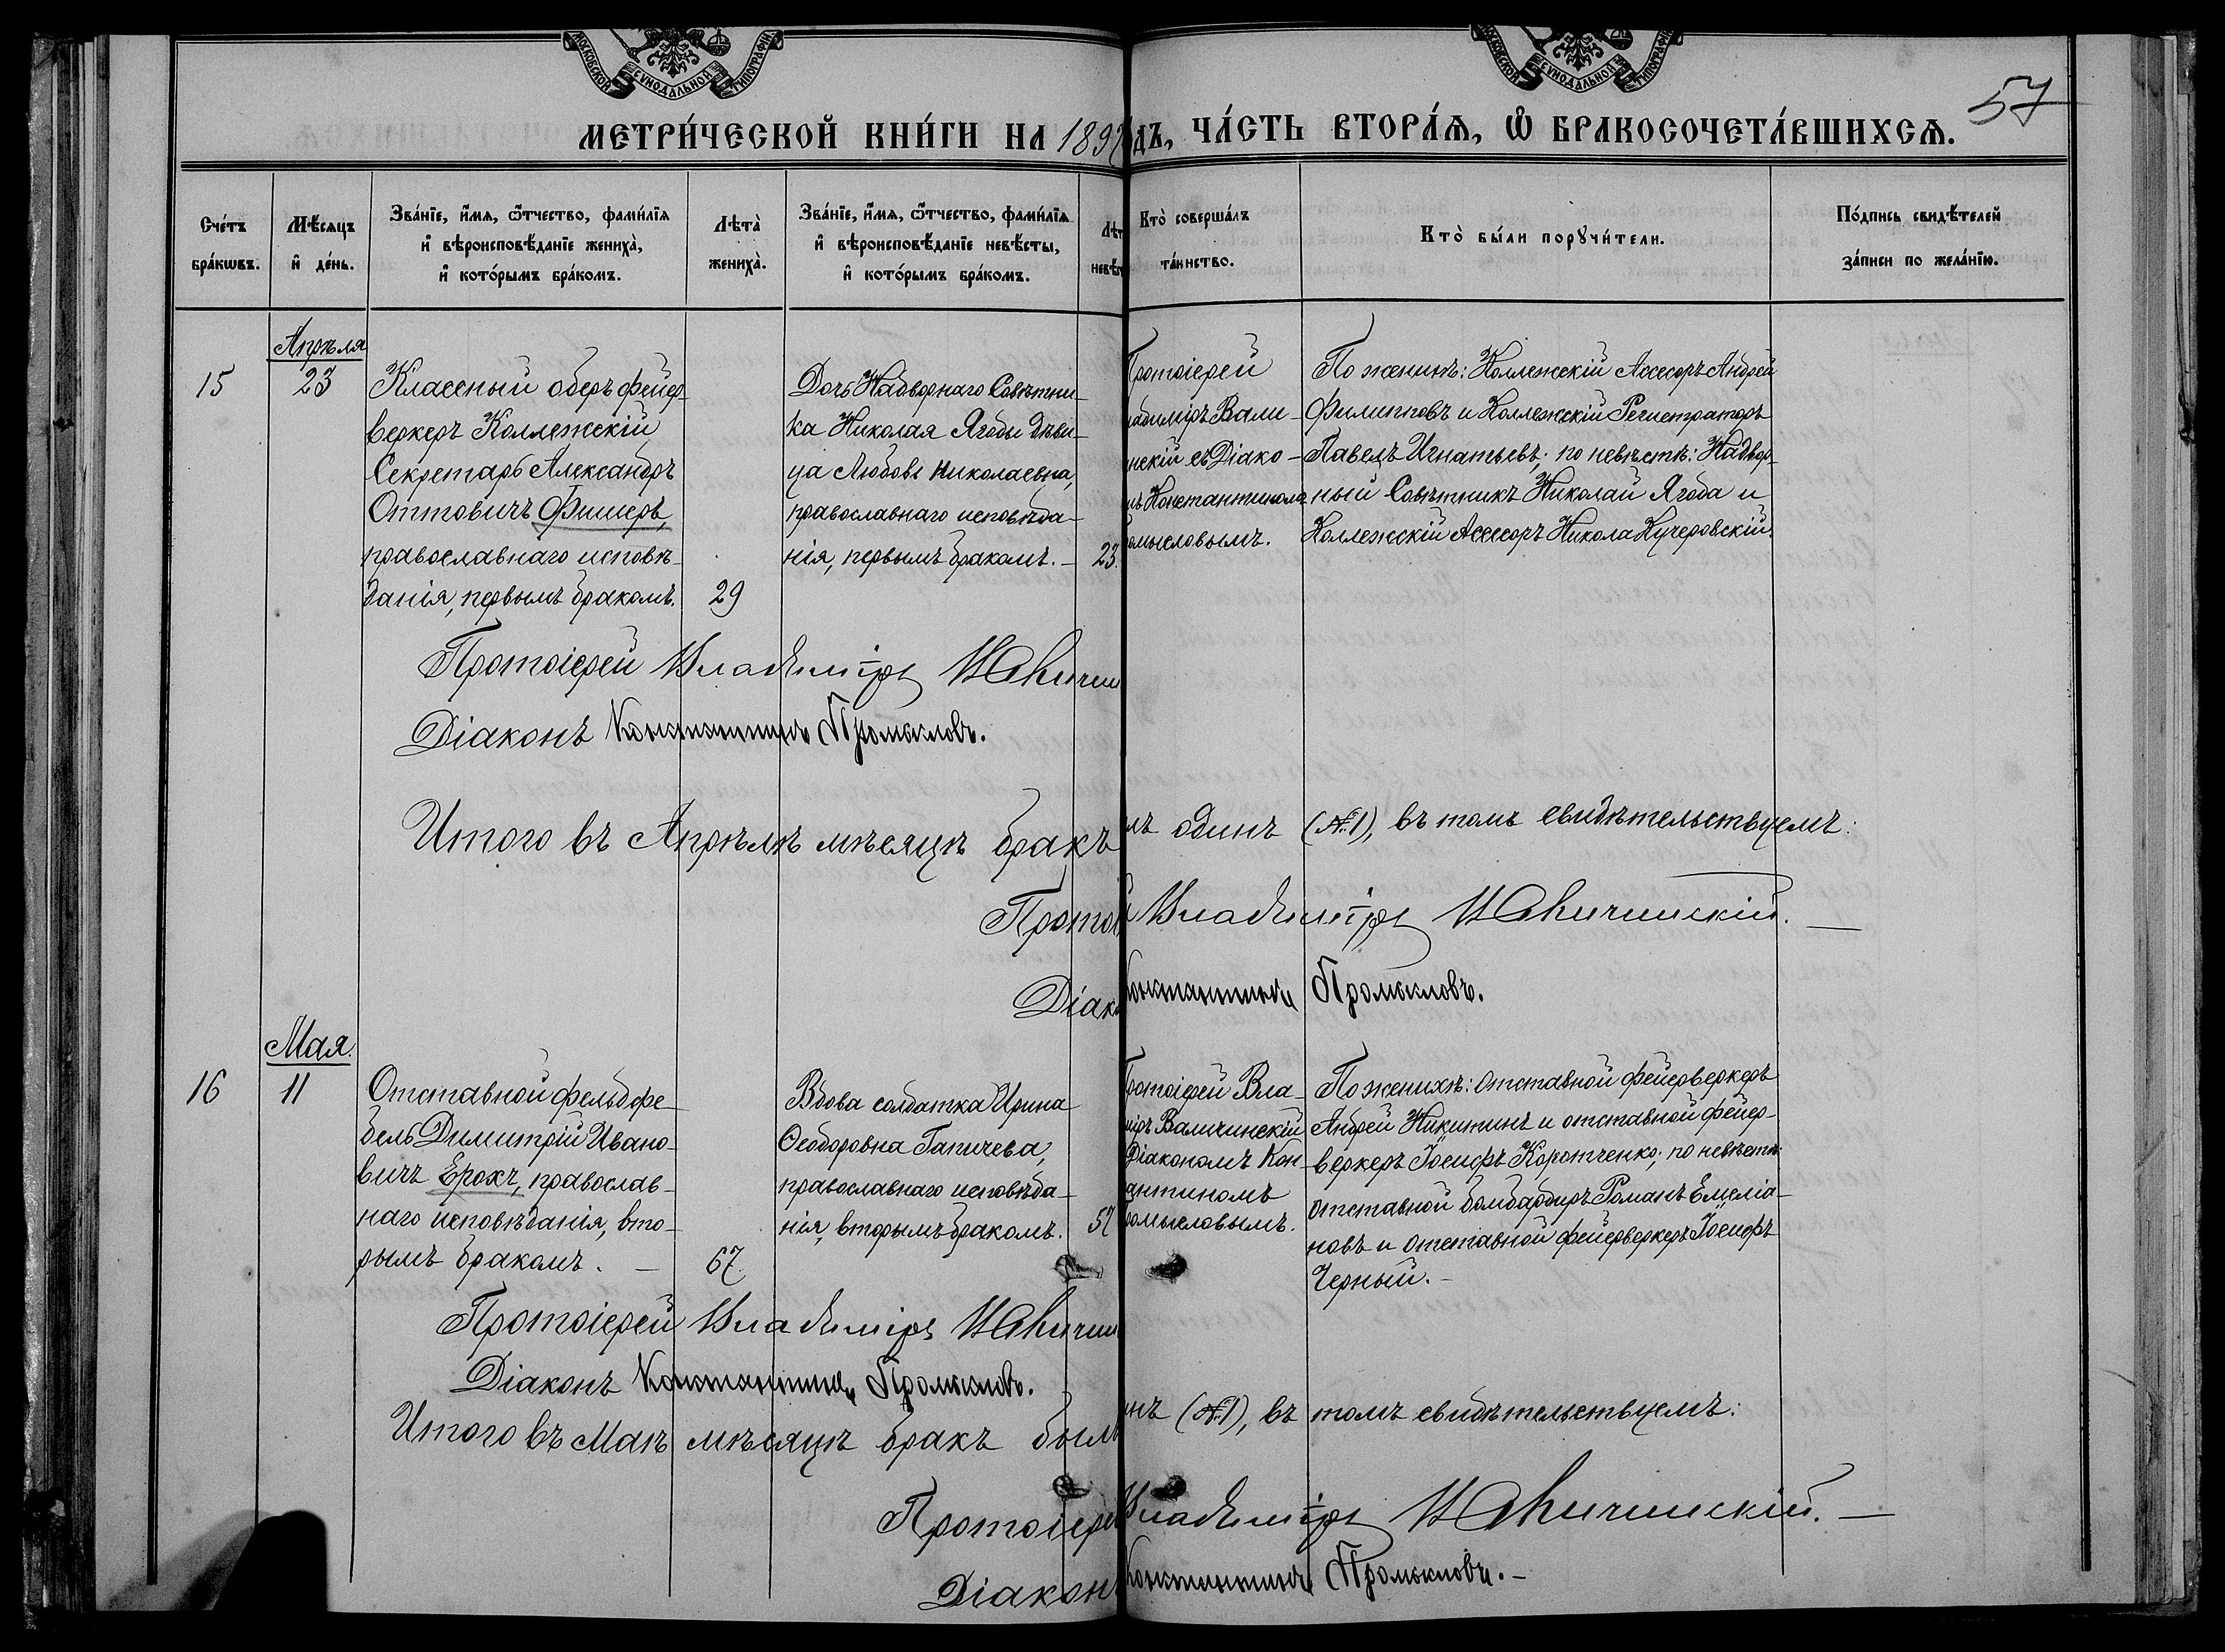 МОСКОВСКОЙ СѴНОДАЛЬНОЙ ТИПОГРАФІИ
МОСКОВСКОЙ СѴНОДАЛЬНОЙ ТИПОГРАФІИ
57
МЕТРИ́ЧЕСКОЙ КНИ́ГИ НА 189 ДЪ, ЧА́СТЬ ВТОРА́Я, Ѡ҆ БРАКОСОЧЕТА́ВШИХСЯ.
Сче́тъ бра́кѡвъ.
Мѣ́сяцъ и҆ де́нь.
Зва́нїе, и҆́мя, ѻ҆́тчество, фами́лїя и҆ вѣроисповѣ́данїе жениха̀, и҆ кото́рымъ бра́комъ.
Лѣта̀ жениха̀.
Зва́нїе, и҆́мя, ѻ҆́тчество, фами́лїя и҆ вѣроисповѣ́данїе невѣ́сты, и҆ кото́рымъ бра́комъ.
Лѣт невѣ́с
Кто̀ соверша́лъ та́инство.
Кто̀ бы́ли порꙋчи́тели.
По́дпись свидѣ́телей за́писи по жела́нїю.
Апрѣля
15
23
Классный оберъ фейер-
веркеръ Коллежскій
Секретарь Александръ
Оттовичъ Фишеръ,
православнаго исповѣ-
данія, первымъ бракомъ.
29
Дочь Надворнаго Совѣтни-
ка Николая Ягоды дѣви-
ца Любовь Николаевна,
православнаго исповѣда-
нія, первымъ бракомъ. -
23.
Протоіерей
адиміръ Вали-
нскій съ Діако-
мъ Константином
омысловымъ.
По женихѣ: Коллежскій Ассесоръ Андрей
Филипповъ и Коллежскій Регистраторъ
Павелъ Игнатьевъ; по невѣстѣ: Надвор-
ный Совѣтникъ Николай Ягода и
Коллежскій Ассесоръ Никола Кучеровскій.
Протоіерей Владиміръ Валичи
Діаконъ Константинъ Промысловъ.
Итого въ Апрѣлѣ мѣсяцѣ бракъ
лъ одинъ (№1), въ томъ свидѣтельствуемъ:
Протоі Владиміръ Валичинскій. —
Діако Константинъ Промысловъ.
Мая.
16
11
Отставной фельдфе-
бель Димитрій Ивано-
вичъ Ерохъ, православ-
наго исповѣданія, вто-
рымъ бракомъ. —
67.
Вдова солдатка Ирина
Ѳеодоровна Гапичева,
православнаго исповѣда-
нія, вторымъ бракомъ.
57
Протоіерей Вла-
міръ Валичинскій
Діакономъ Кон-
антиномъ
ромысловымъ.
По женихѣ: отставной фейерверкеръ
Андрей Никитинъ и отставной фейер-
веркеръ Іосифъ Коротченко; по невѣстѣ:
отставной бомбардиръ Романъ Емеліа-
новъ и отставной фейерверкеръ Іосифъ
Черный. -
Протоіерей Владиміръ Валичи
Діаконъ Константинъ Промысловъ.
Итого въ Маѣ мѣсяцѣ бракъ былъ
нъ (№1), въ томъ свидѣтельствуемъ:
Протоіере Владиміръ Валичинскій. —
Діакон Константинъ Промысловъ. -